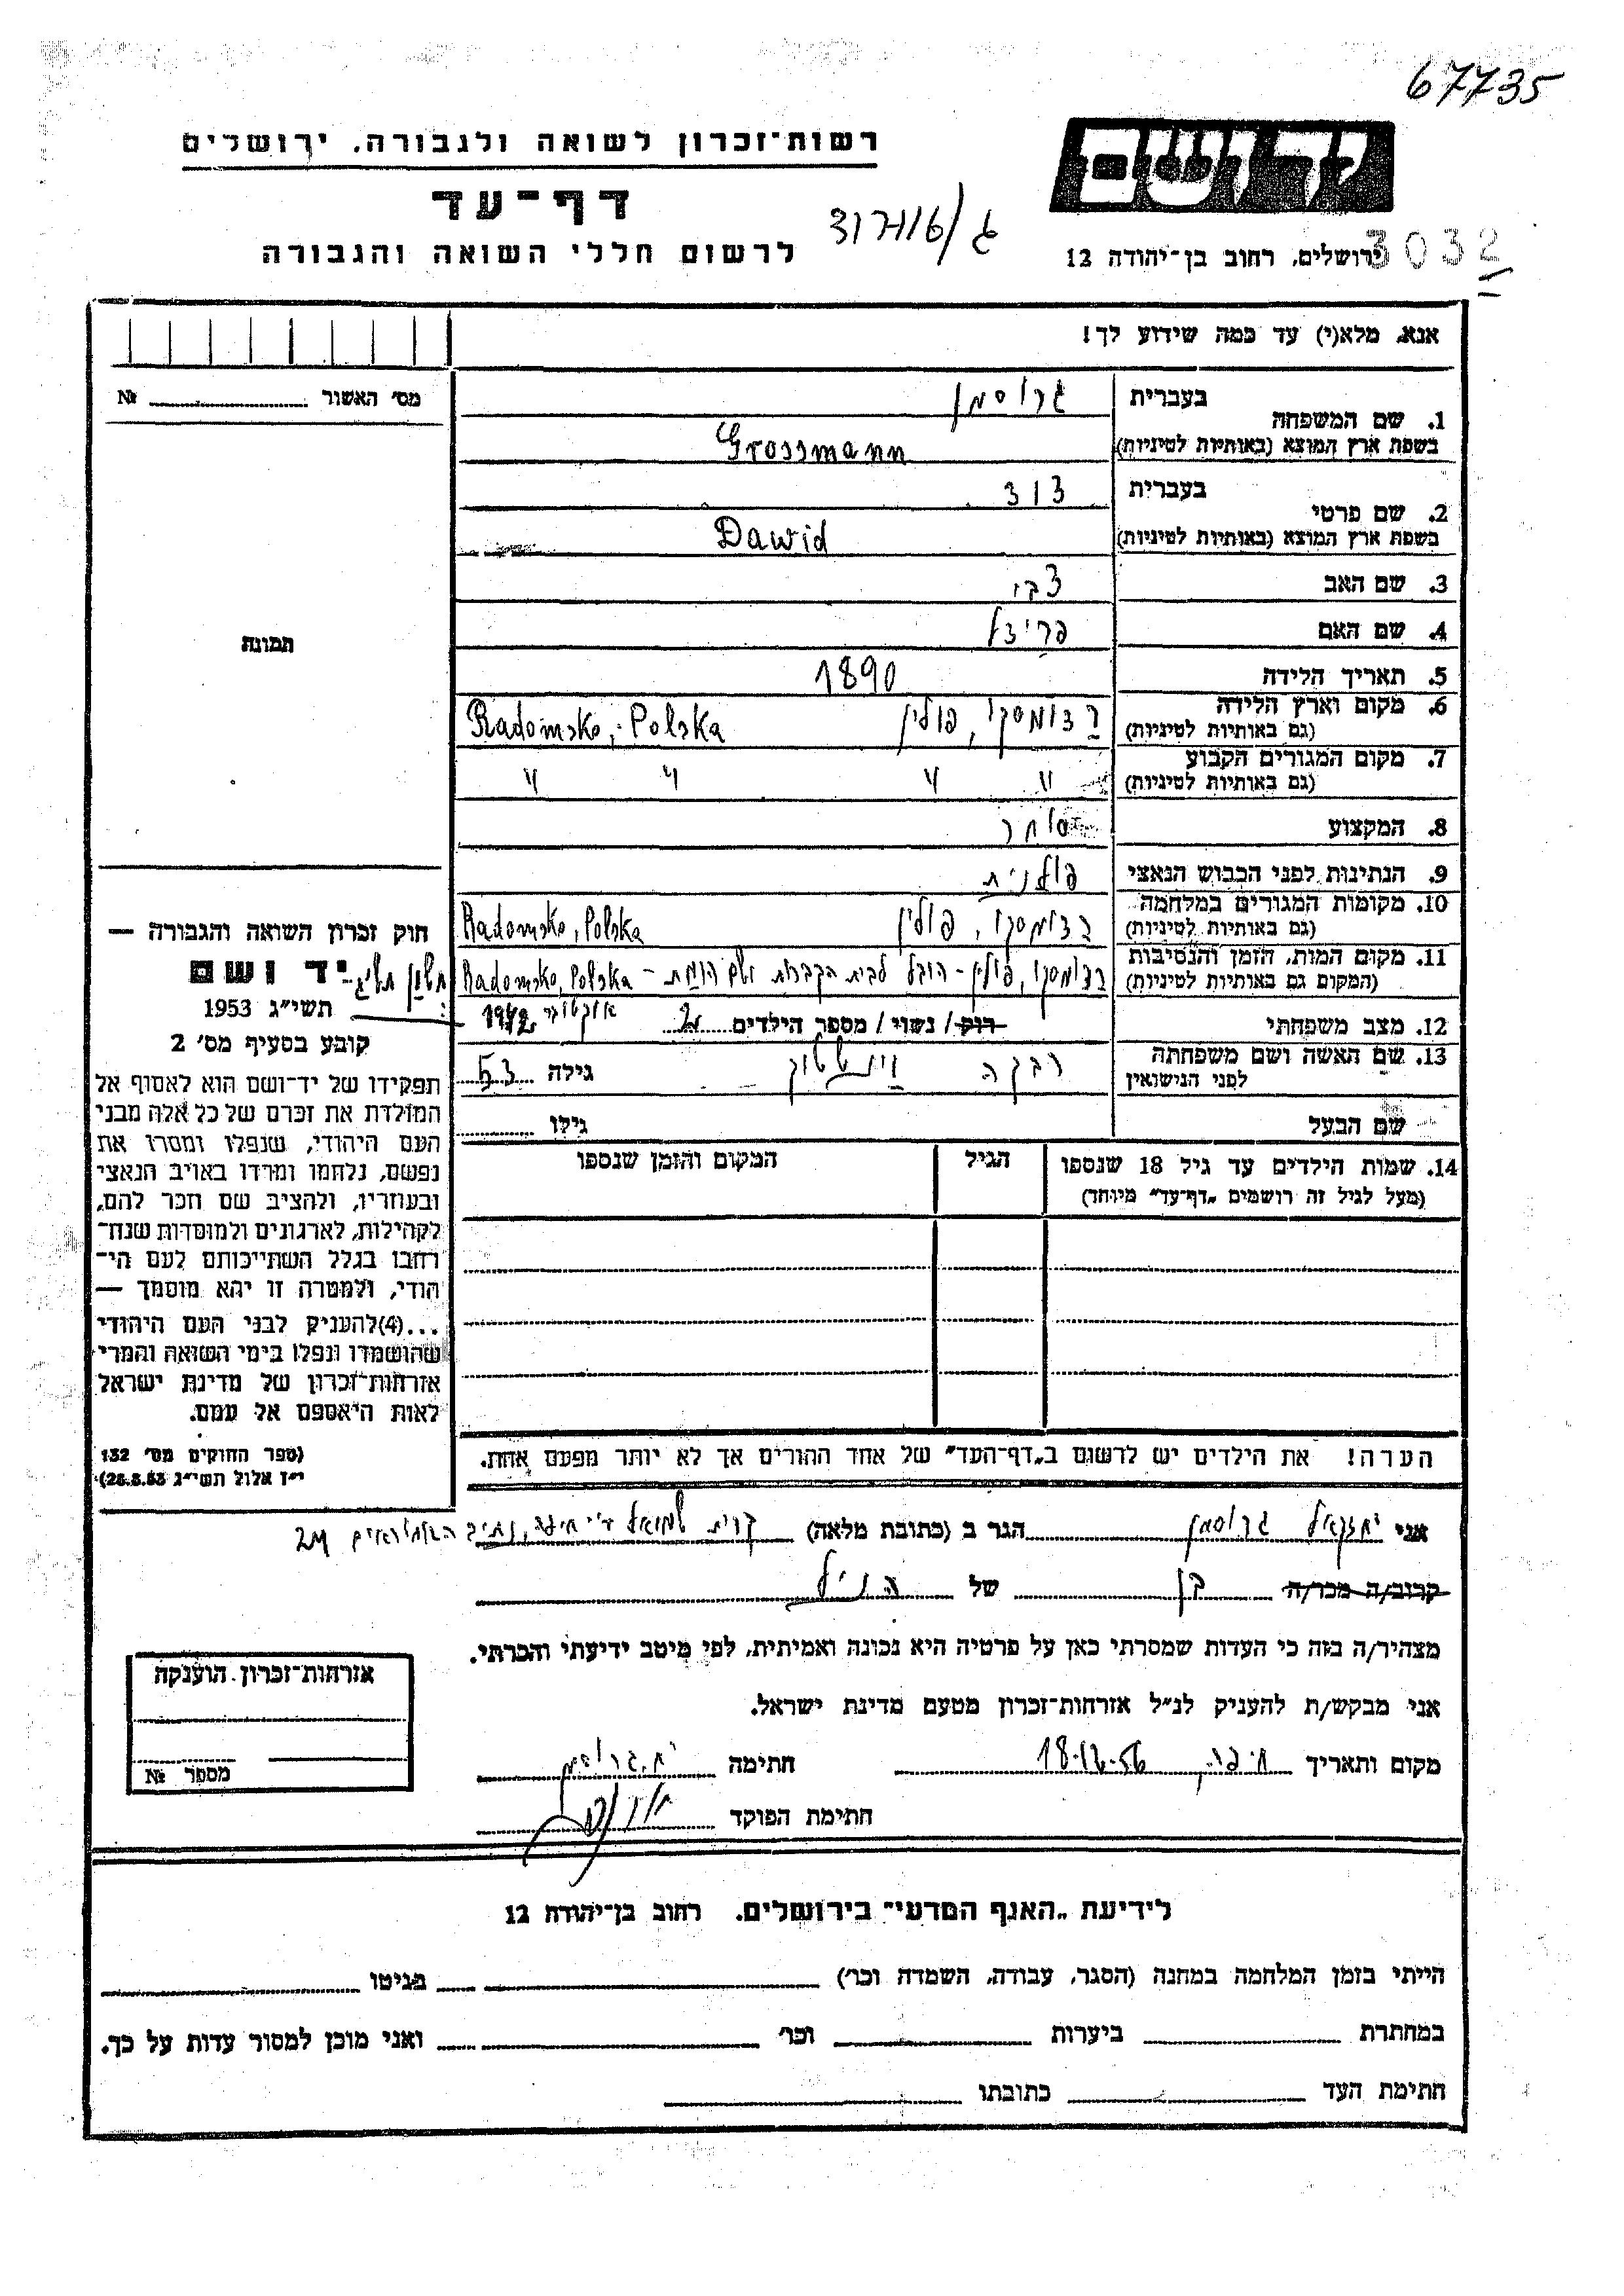 67735
רשות־זכרון לשואה ולגבורה, ירושלים
יד ושם
דף־עד
317116/ג
לרשום חללי השואה והגבורה
ירושלים, רחוב בן־יהודה 12
3032
אנא, מלא(י) עד כמה שידוע לך!
מס' האשור № 
1. שם המשפחה
בעברית גרוסמן
בשפת ארץ המוצא (באותיות לטיניות) Grossmann
2. שם פרטי
בעברית דוד
בשפת ארץ המוצא (באותיות לטיניות) Dawid
3. שם האב צבי
4. שם האם פריידל
תמונה
5. תאריך הלידה 1890
6. מקום וארץ הלידה רדומסקו, פולין Radomsko, Polska
(גם באותיות לטיניות)
7. מקום המגורים הקבוע " " " "
(גם באותיות לטיניות)
8. המקצוע סוחר
9. הנתינות לפני הכבוש הנאצי פולנית
10. מקומות המגורים במלחמה רדומסקו, פולין Radomsko, Polska
(גם באותיות לטיניות)
11. מקום המות, הזמן והנסיבות רדומסקו, פולין - הובל לבית הקברות ושם הומת - Radomsko, Polska - חשון תש״ג
(המקום גם באותיות לטיניות)
אוקטובר 1942
12. מצב משפחתי רווק / נשוי / מספר הילדים 2
13. שם האשה ושם משפחתה רבקה גילה 53
לפני הנישואין
שם הבעל גילו
14. שמות הילדים עד גיל 18 שנספו הגיל המקום והזמן שנספו
(מעל לגיל זה רושמים „דף־עד" מיוחד)
חוק זכרון השואה והגבורה —
יד ושם
תשי״ג 1953
קובע בסעיף מס' 2
תפקידו של יד־ושם הוא לאסוף אל
המולדת את זכרם של כל אלה מבני
העם היהודי, שנפלו ומסרו את
נפשם, נלחמו ומרדו באויב הנאצי
ובעוזריו, ולהציב שם וזכר להם,
לקהילות, לארגונים ולמוסדות שנח־
רחבו בגלל השתייכותם לעם הי־
הודי, ולמטרה זו יהא מוסמך —
...(4)להעניק לבני העם היהודי
שהושמדו ונפלו בימי השואה והמרי
אזרחות־זכרון של מדינת ישראל
לאות היאספם אל עמם.
(ספר החוקים מס' 132
י״ז אלול תשי״ג 28.8.53)
הערה! את הילדים יש לרשום ב„דף־העד" של אחד ההורים אך לא יותר מפעם אחת.
אני יחזקאל גרוסמן הגר ב (כתובת מלאה) קרית שמואל ע״י חיפה,
קרוב/ה מכר/ה בן של הנ״ל
מצהיר/ה בזה כי העדות שמסרתי כאן על פרטיה היא נכונה ואמיתית, לפי מיטב ידיעתי והכרתי.
אני מבקש/ת להעניק לנ״ל אזרחות־זכרון מטעם מדינת ישראל.
מקום ותאריך חיפה 18-12-56 חתימה יח. גרוסמן
חתימת הפוקד
אזרחות־זכרון הוענקה
מספר №
לידיעת „האגף המדעי" בירושלים. רחוב בן־יהודה 12
הייתי בזמן המלחמה במחנה (הסגר, עבודה, השמדה וכו') בגיטו
במחתרת ביערות וכו' ואני מוכן למסור עדות על כך.
חתימת העד כתובתו